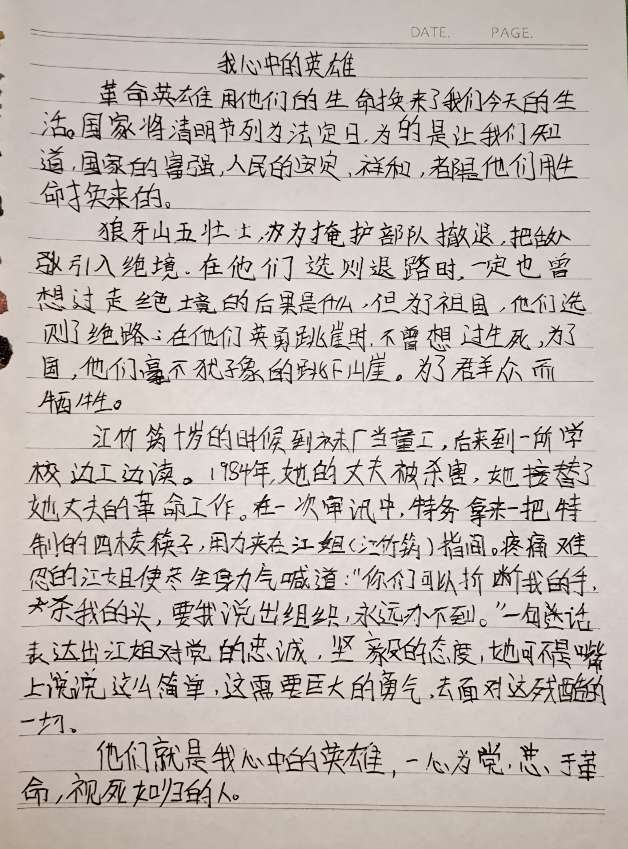 DATE. PAGE.
我心中的英雄
革命英雄用他们的生命换来了我们今天的生
活。国家将清明节列为法定日,为的是让我们知
道,国家的富强,人民的安定、祥和,都是他们用生
命换来的。
狼牙山五壮士,为掩护部队撤退,把敌人
引入绝境。在他们选则退路时,一定也曾
想过走绝境的后果是什么,但为了祖国,他们选
则了绝路;在他们英勇跳崖时,不曾想过生死,为了
国,他们毫不犹予象的跳下山崖。为了群众而
牺牲。
江竹筠十岁的时候到袜厂当童工,后来到一所学
校边工边读。1984年,她的丈夫被杀害,她接替了
她丈夫的革命工作。在一次审讯中,特务拿来一把特
制的四棱筷子,用力夹在江姐(江竹筠)指间。疼痛难
忍的江姐使尽全身力气喊道:“你们可以折断我的手,
杀我的头,要我说出组织,永远办不到。”一句话
表达出江姐对党的忠诚,坚毅的态度,她可不是嘴
上说说这么简单,这需要巨大的勇气,去面对这残酷的
一切。
他们就是我心中的英雄,一心为党,忠于革
命,视死如归的人。